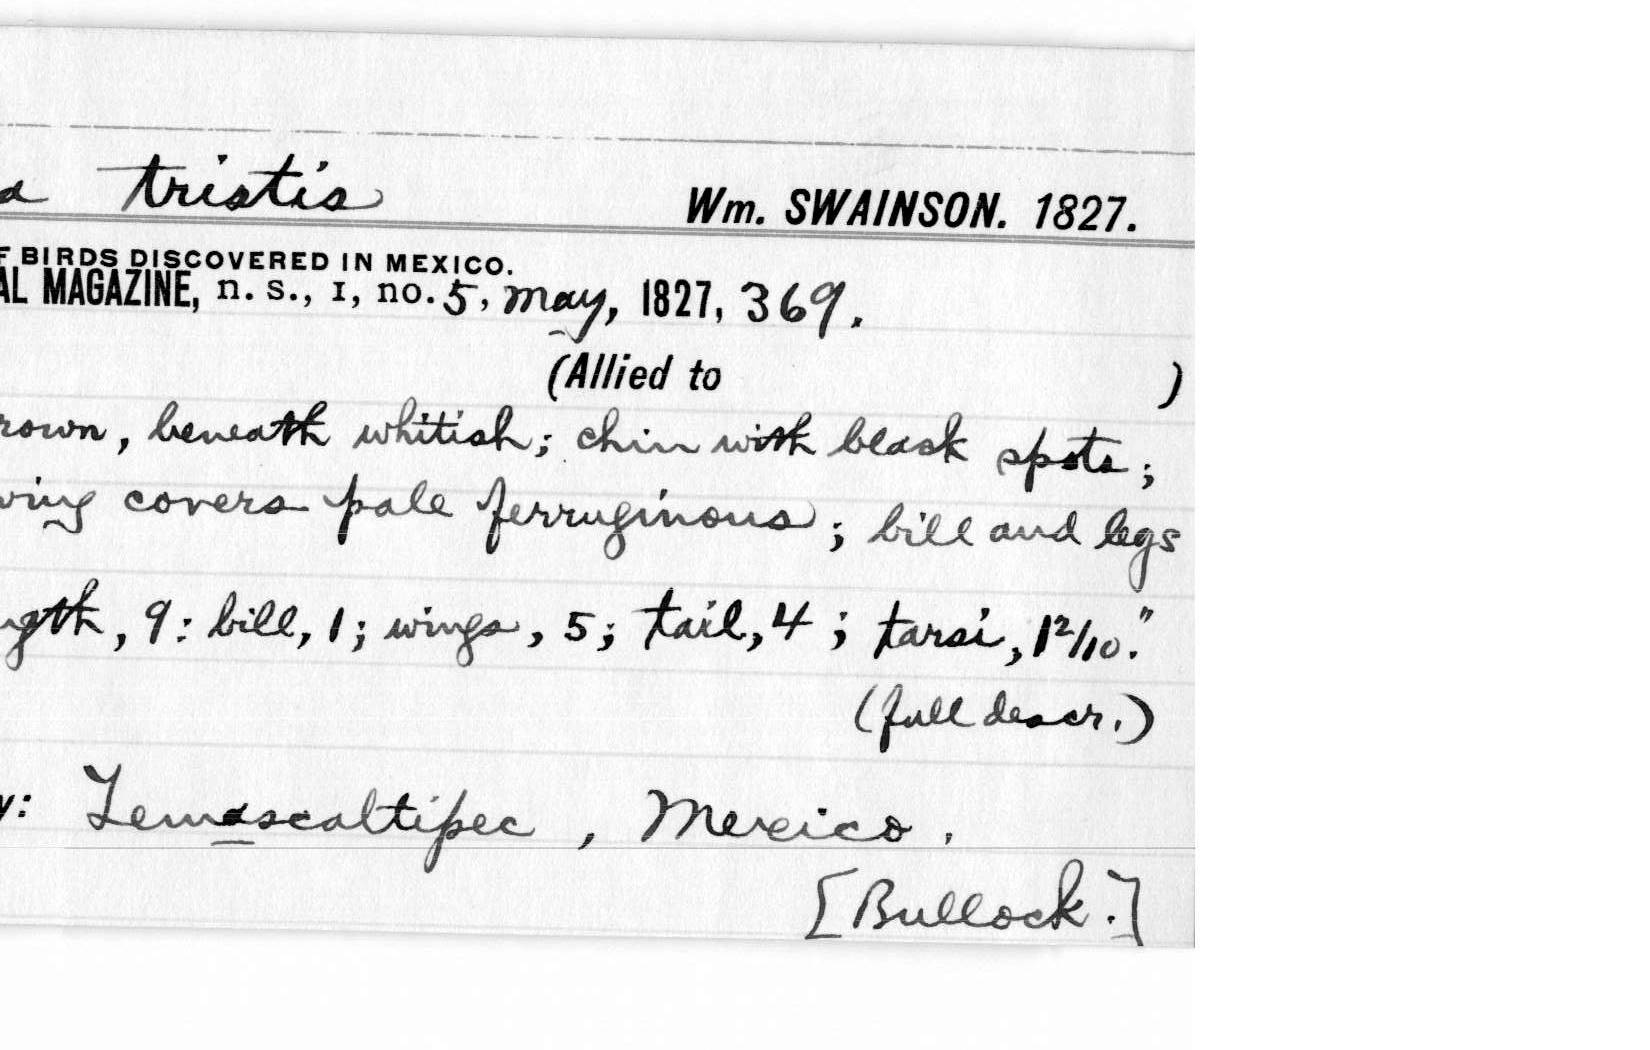 a tristis Wm. SWAINSON. 1827.
F BIRDS DISCOVERED IN MEXICO.
AL MAGAZINE, n. s., I, no. 5, May, 1827, 369.
(Allied to )
rown, beneath whitish; chin with black spots;
wing covers pale ferruginous; bill and legs
ngth, 9: bill, 1; wings, 5; tail, 4; tarsi, 1 2/10."
(full descr.)
y: Temascaltipec, Mexico.
[Bullock.]